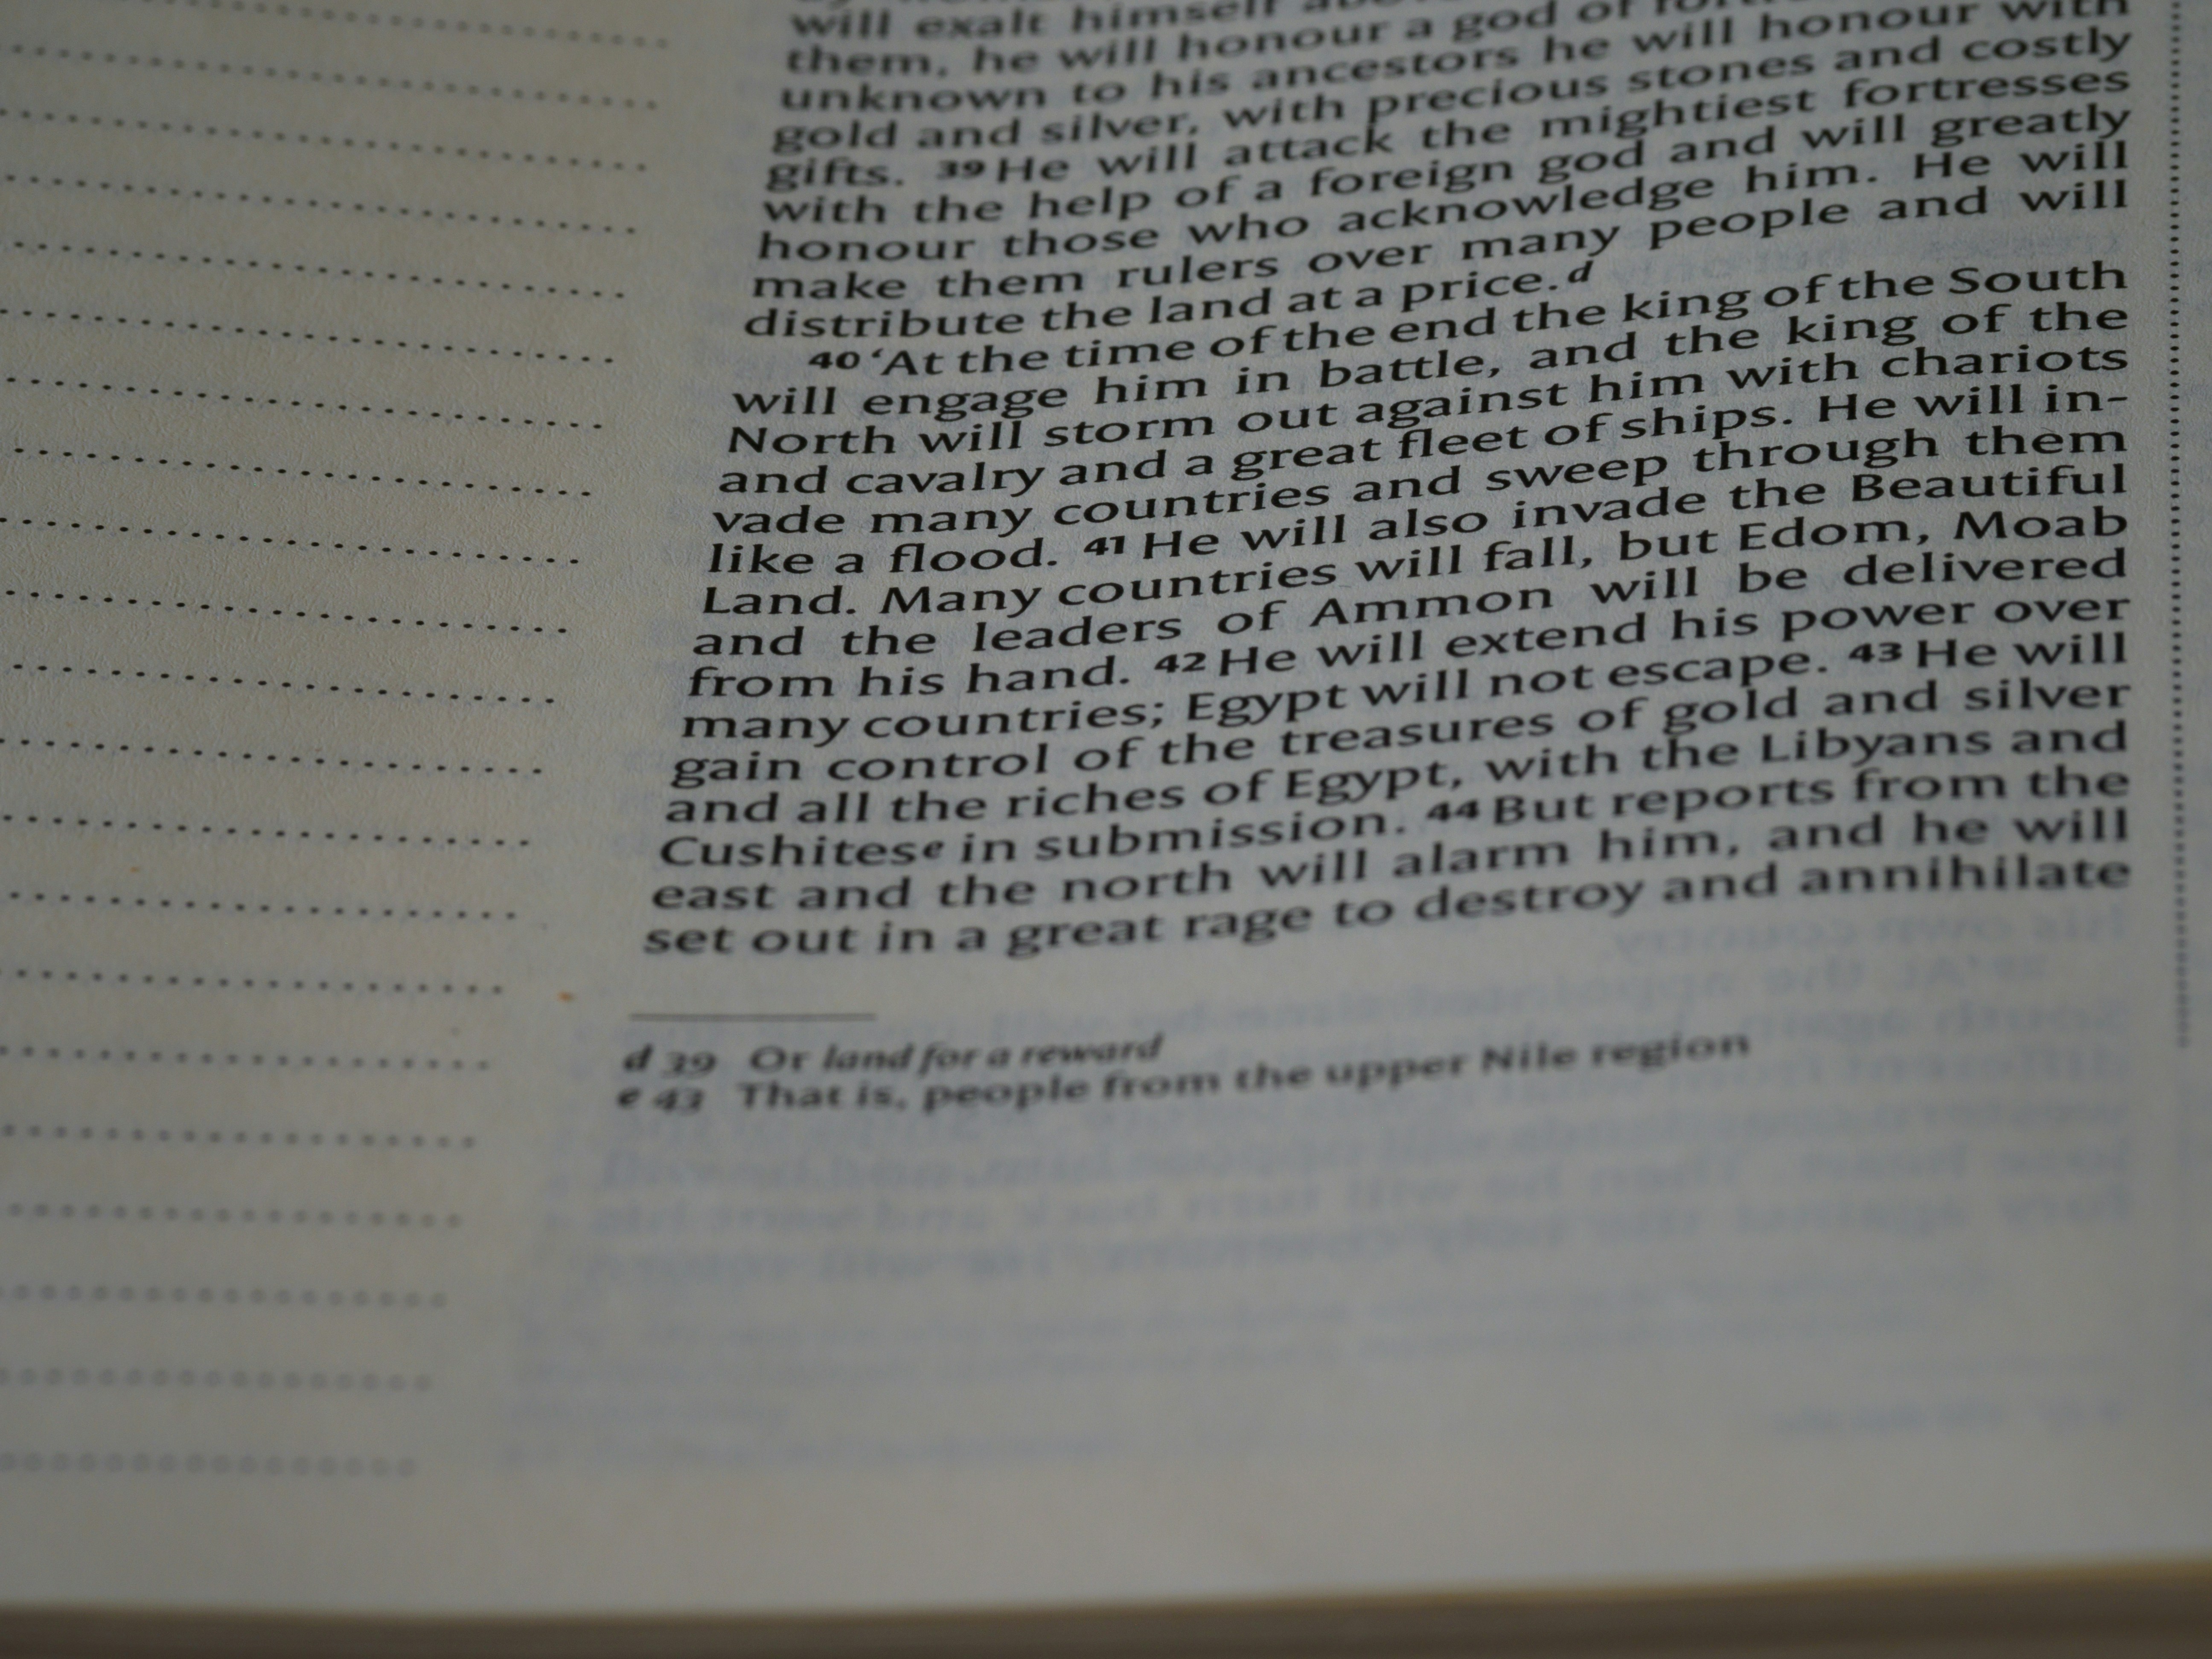 will exalt himself
them, he will honour a god of
unknown to his ancestors he will honour with
gold and silver, with precious stones and costly
gifts. 39 He will attack the mightiest fortresses
with the help of a foreign god and will greatly
honour those who acknowledge him. He will
make them rulers over many people and will
distribute the land at a price.d
40 ‘At the time of the end the king of the South
will engage him in battle, and the king of the
North will storm out against him with chariots
and cavalry and a great fleet of ships. He will in-
vade many countries and sweep through them
like a flood. 41 He will also invade the Beautiful
Land. Many countries will fall, but Edom, Moab
and the leaders of Ammon will be delivered
from his hand. 42 He will extend his power over
many countries; Egypt will not escape. 43 He will
gain control of the treasures of gold and silver
and all the riches of Egypt, with the Libyans and
Cushitese in submission. 44 But reports from the
east and the north will alarm him, and he will
set out in a great rage to destroy and annihilate
d 39 Or land for a reward
e 43 That is, people from the upper Nile region